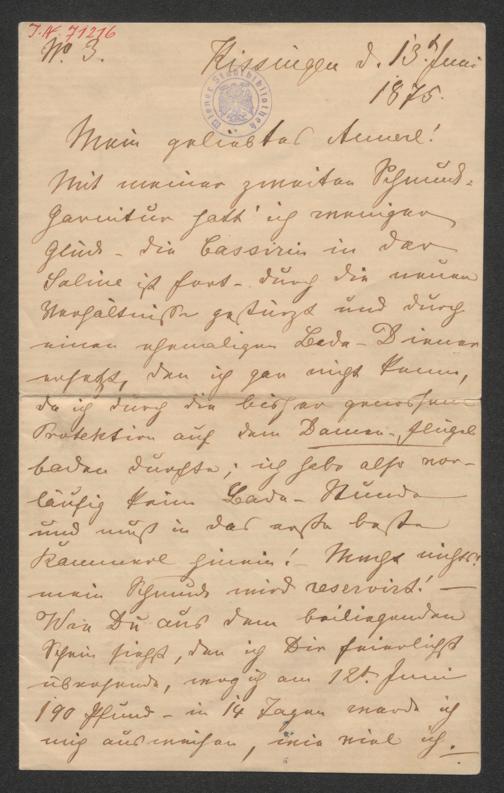 J.N. 71216
No 3.
Kissingen d. 13t Juni
1875.
Wiener Stadtbibliothek
Mein geliebtes Annerl!
Mit meiner zweiten Schmuck-
Garnitur hatt' ich weniger
Glück – die Cassirin in der
Saline ist fort – durch die neuen
Verhältnisse gestürzt und durch
einen ehemaligen Bade-Diener
ersetzt, den ich gar nicht kenne,
da ich durch die bisher genossene
Protektion auf dem Damen-flügel
baden durfte; ich habe also vor-
läufig keine Bade-Stunde
und muß in das erste beste
Kammerl hinein! – Macht nichts!
mein Schmuck wird reservirt! –
Wie Du aus dem beiliegenden
Schein siehst, den ich Dir feierlichst
übersende, wog ich am 12t Juni
190 Pfund – in 14 Tagen werde ich
mich ausweisen, wie viel ich